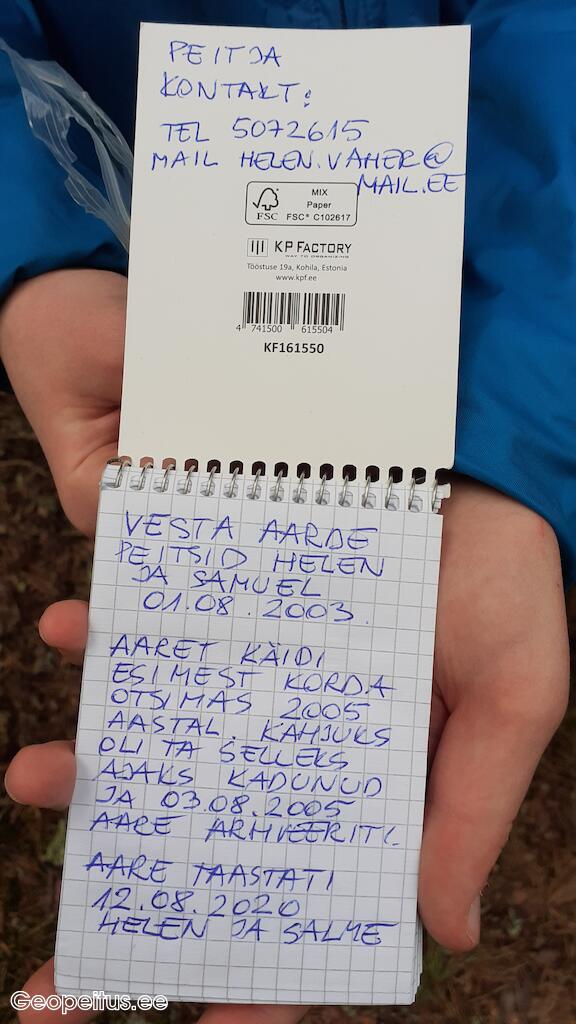 PEITJA
KONTAKT:
TEL 5072615
MAIL HELEN.VAHER@
MAIL.EE
FSC
MIX
Paper
FSC® C102617
KP FACTORY
WAY TO ORGANIZING
Tööstuse 19a, Kohila, Estonia
www.kpf.ee
4 741500 615504
KF161550
VESTA AARDE
PEITSID HELEN
JA SAMUEL
01.08.2003.
AARET KÄIDI
ESIMEST KORDA
OTSIMAS 2005
AASTAL. KAHJUKS
OLI TA SELLEKS
AJAKS KADUNUD
JA 03.08.2005
AARE ARHIVEERITI.
AARE TAASTATI
12.08.2020
HELEN JA SALME
Geopeitus.ee